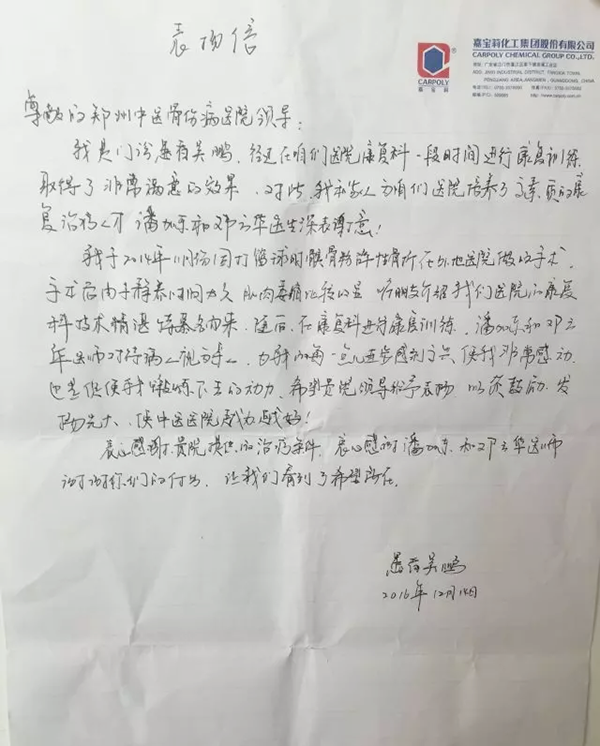 表扬信
嘉宝莉化工集团股份有限公司
CARPOLY CHEMICAL GROUP CO.,LTD.
CARPOLY
嘉宝莉
尊敬的郑州中医骨伤病医院领导:
我是门诊患者吴鹏,经过在咱们医院康复科一段时间进行康复训练
取得了非常满意的效果,对此,我和家人为咱们医院培养了高素质的康
复治疗人才潘如东和邓云华医生深表谢意!
我于2014年11月份因打篮球时髌骨粉碎性骨折在外地医院做的手术,
手术后由于静养时间太久肌肉萎缩比较明显 听朋友介绍我们医院的康复
科技术精湛 随后,在康复科进行康复训练,潘如东和邓云
华医师对待病人视亲人,为我的每一点儿进步感到高兴 使我非常感动,
也是促使我锻炼下去的动力,希望贵院领导给予表扬 以资鼓励,发
扬光大,使中医医院越办越好!
衷心感谢贵院提供的治疗条件,衷心感谢潘如东和邓云华医师
谢谢你们的付出,让我们看到了希望所在.
患者吴鹏
2016年12月14日